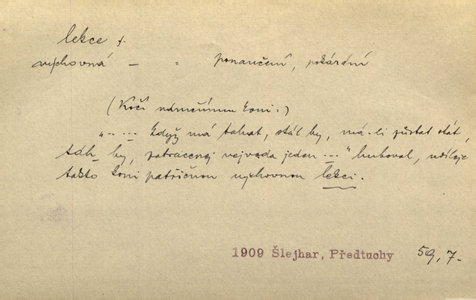 lekce f.
výchovná — „ ponaučení, pokárání
(Kočí námořnímu koni:)
„-- ... když má tahat, stál by, má-li zůstat stát,
táh_ by, zatracenej nejvada jeden ..." huboval, uděluje
takto koni patřičnou výchovnou lekci.
1909 Šlejhar, Předtuchy 59,7.